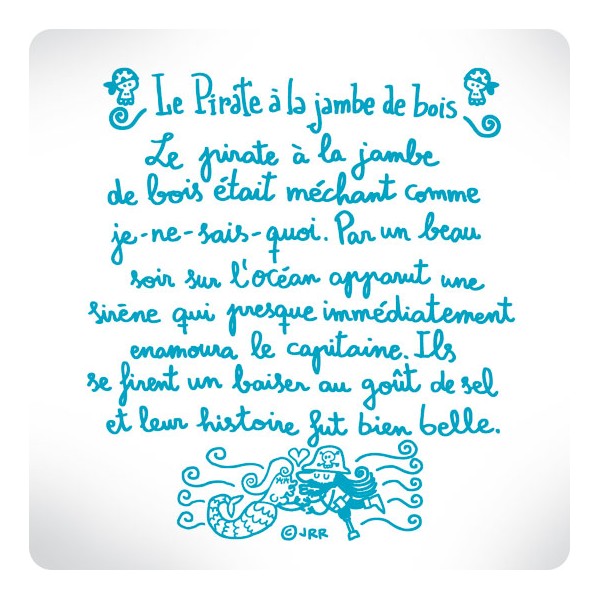 Le Pirate à la jambe de bois
Le pirate à la jambe
de bois était méchant comme
je-ne-sais-quoi. Par un beau
soir sur l'océan apparut une
sirène qui presque immédiatement
enamoura le capitaine. Ils
se firent un baiser au goût de sel
et leur histoire fut bien belle.
©JRR